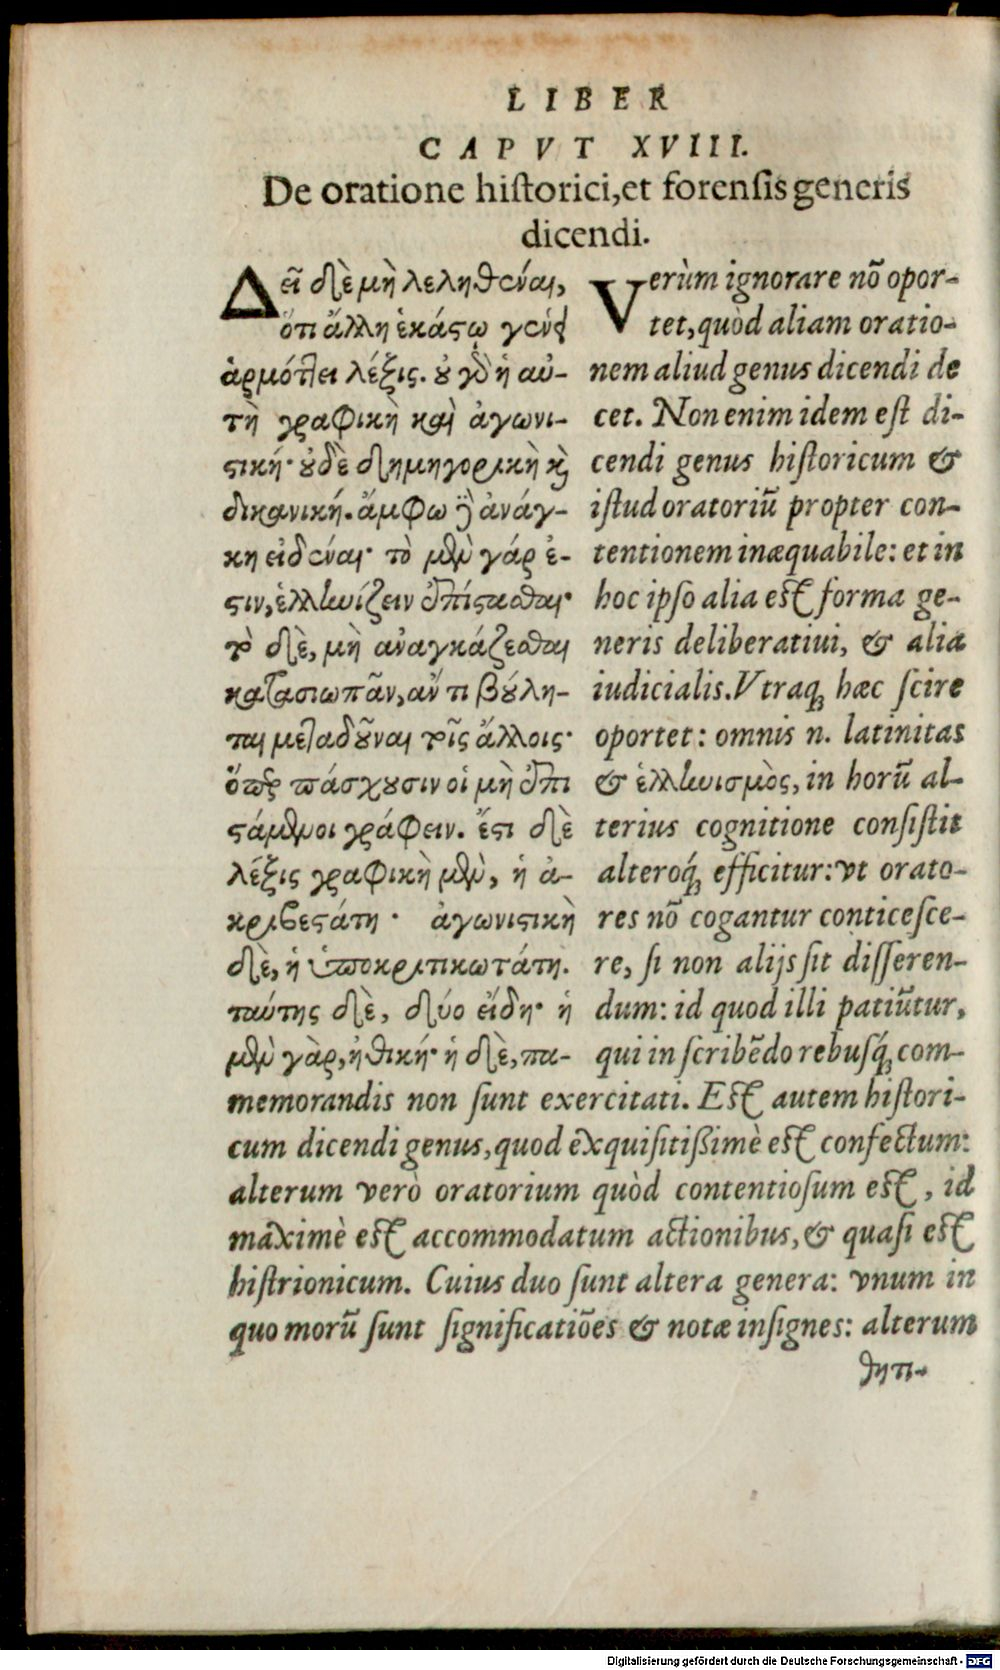 LIBER
CAPVT XVIII.
De oratione hiſtorici,et forenſis generis
dicendi.
Δεῖ δὲ μὴ λεληθέναι,
ὅτι ἄλλη ἑκάςῳ γένει
ἁρμότ]ει λέξις. ȣ γὸ ἡ αὐ-
τὴ γραφικὴ καὶ ἀγωνι-
ςική· ȣδὲ δημηγορικὴ κὶ
δικανική. ἄμφω δὲ ἀνάγ-
κη εἰδέναι· τὸ μὲν γάρ ἐ-
ςιν, ἑλληνίζειν ἐπίςαθαι·
τὸ δὲ, μὴ ἀναγκάζεθαι
κατασιωπᾶν, ἄν τι βȣ́λη-
ται μεταδȣ͂ναι τοῖς ἄλλοις·
ὅπερ πάσχȣσιν οἱ μὴ ἐπι
ςάμενοι γράφειν. ἔςι δὲ
λέξις γραφικὴ μὲν, ἡ ἀ-
κριβεςάτη· ἀγωνιςικὴ
δὲ, ἡ ὑποκριτικωτάτη.
ταύτης δὲ, δύο εἴδη· ἡ
μὲν γὰρ, ἠθική· ἡ δὲ, πα-
Verùm ignorare nō opor-
tet, quòd aliam oratio-
nem aliud genus dicendi de
cet. Non enim idem eſt di-
cendi genus hiſtoricum &
iſtud oratoriū propter con-
tentionem inæquabile: et in
hoc ipſo alia eſt forma ge-
neris deliberatiui, & alia
iudicialis. Vtraq; hæc ſcire
oportet: omnis n. latinitas
& ἑλληνισμὸς, in horū al-
terius cognitione conſiſtit
alteroq́; efficitur: vt orato-
res nō cogantur conticeſce-
re, ſi non alijs ſit diſſeren-
dum: id quod illi patiūtur,
qui in ſcribēdo rebuſq́; com-
memorandis non ſunt exercitati. Eſt autem hiſtori-
cum dicendi genus, quod exquiſitißimè eſt confectum:
alterum verò oratorium quòd contentioſum eſt, id
maximè eſt accommodatum actionibus, & quaſi eſt
hiſtrionicum. Cuius duo ſunt altera genera: vnum in
quo morū ſunt ſignificatiōes & notæ inſignes: alterum
θητι-
Digitalisierung gefördert durch die Deutsche Forschungsgemeinschaft - DFG